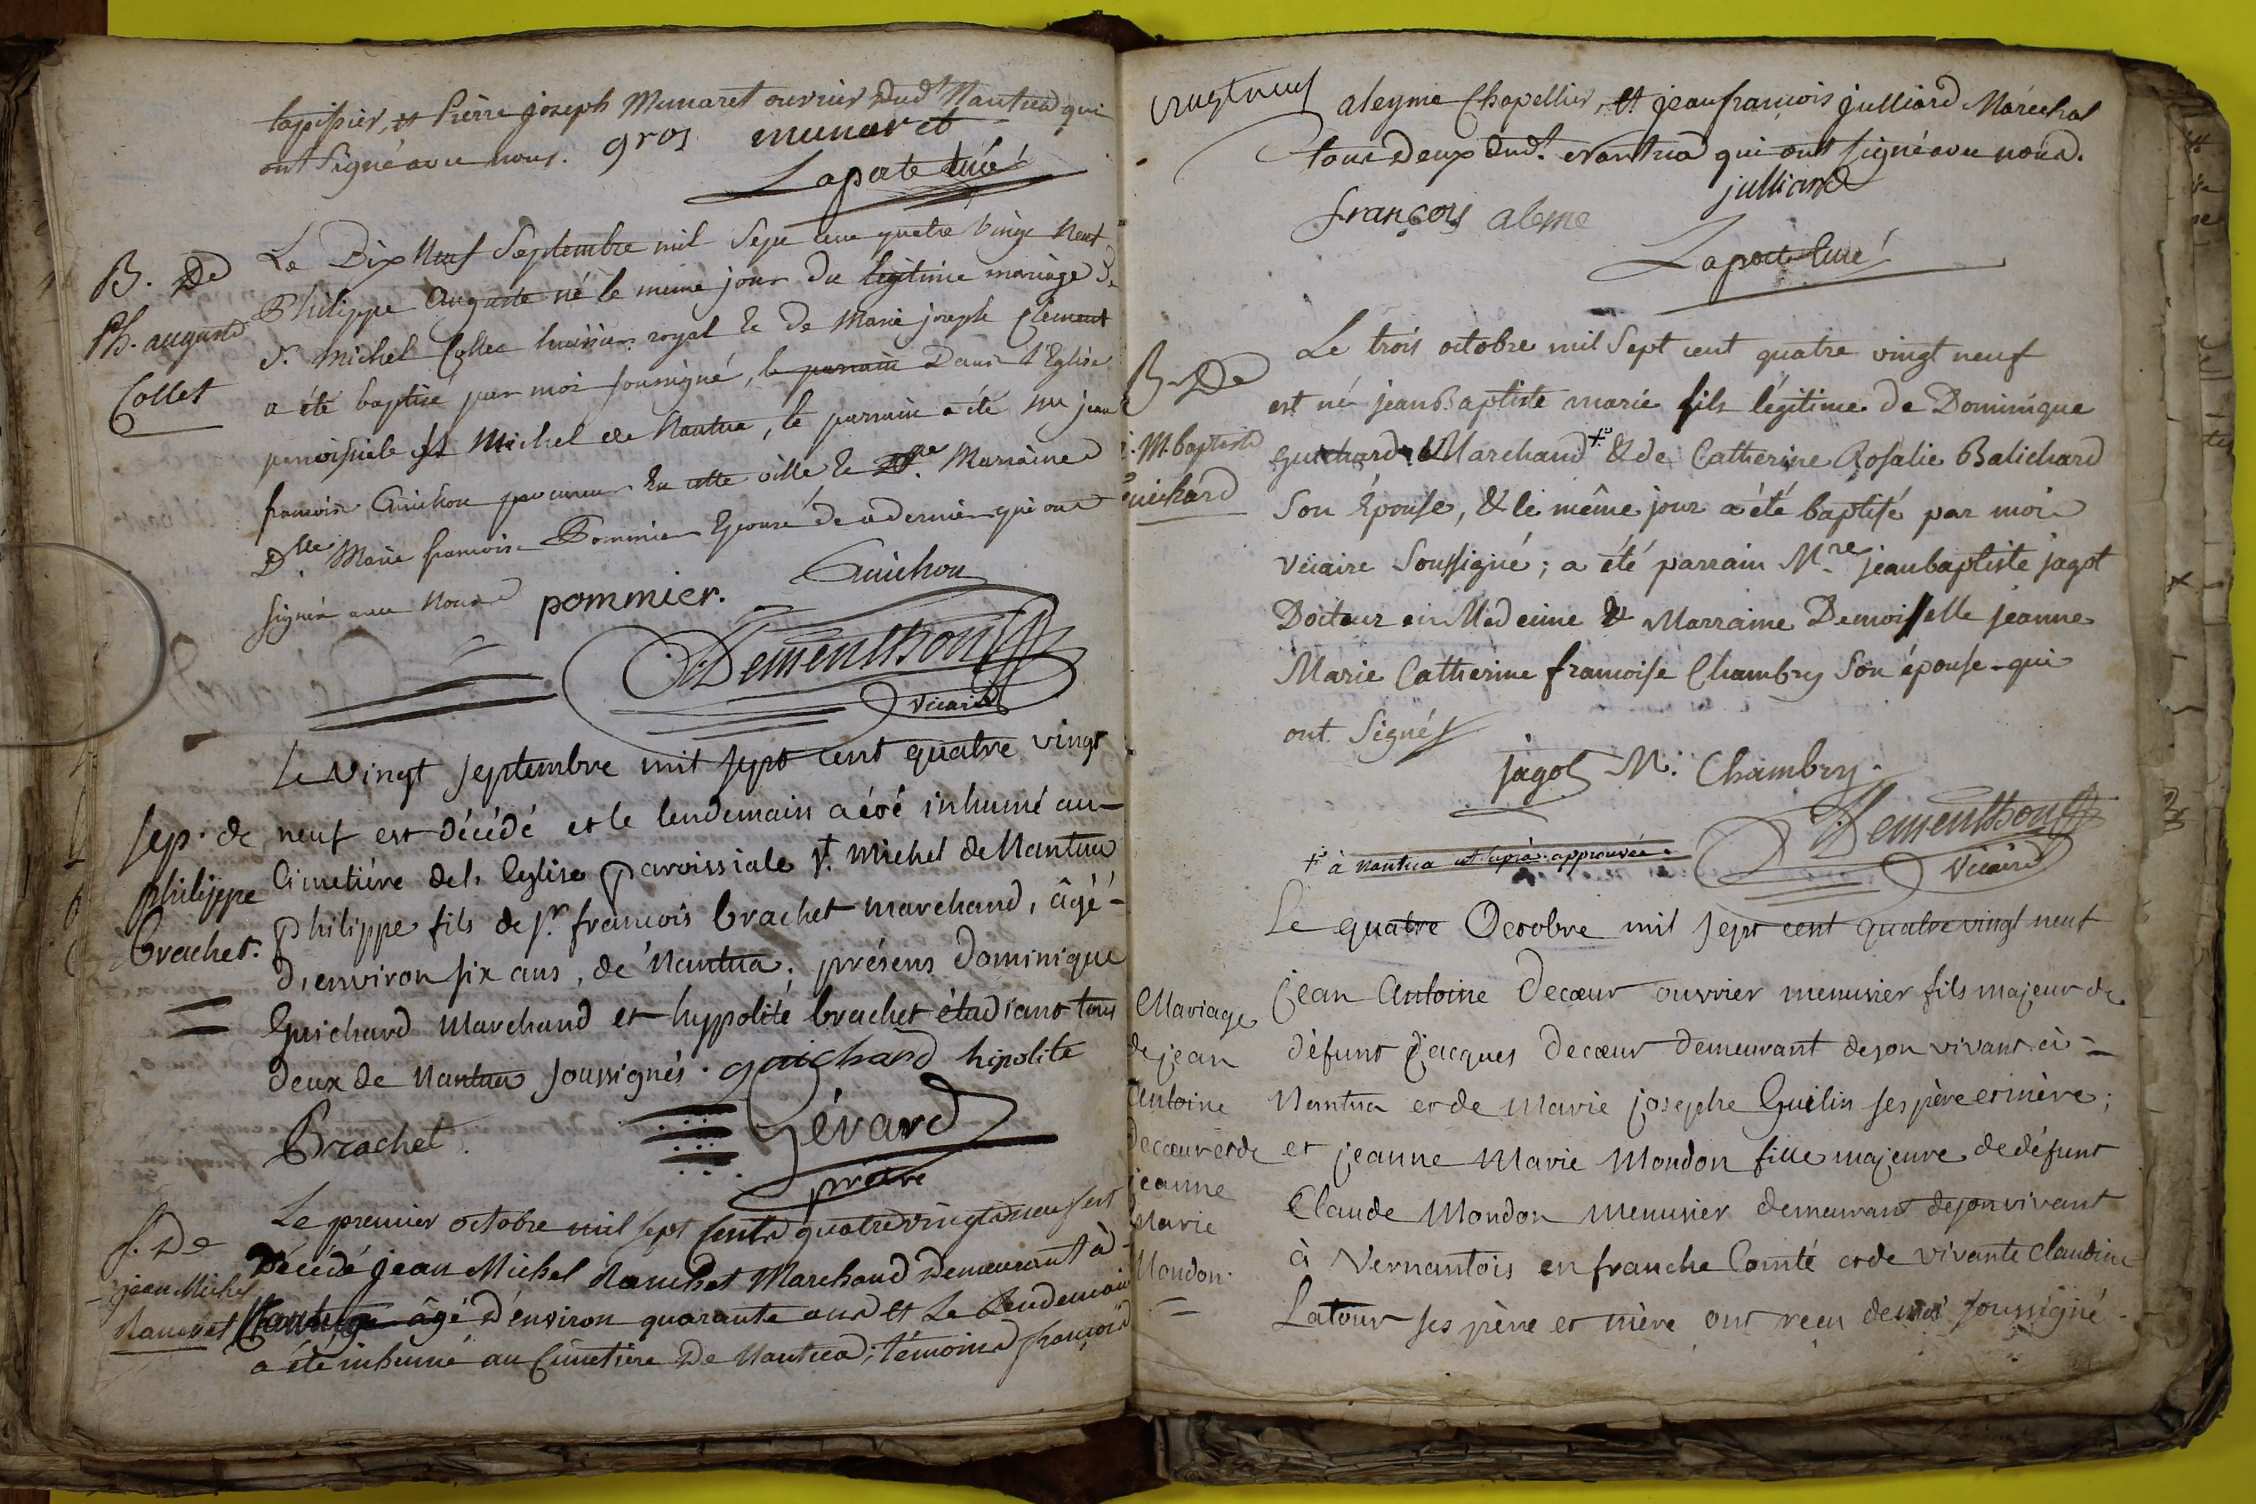 tapissier, et Pierre joseph Munaret ouvrier dud.t Nantua qui
ont Signé avec nous. gros munaret
Laporte Curé
B. De
Ph. auguste
Collet
Le Dix Neuf Septembre mil Sept cent quatre vingt Neuf
Philippe Auguste né le meme jour du legitime mariage De
S.r Michel Collet huissier royal & de Marie joseph Clement
a été baptisé par moi soussigné, le parrain Dans l'Eglise
paroissiale St Michel de Nantua, le parrain a été Me jean
francois Guichon procureur En cette ville & la Marraine
D.lle Marie francoise Pommier Epouse de ce dernier qui ont
signés avec Nous
pommier. Guichon
Dementhon
Vicaire
Sep. de
philippe
brachet.
Le vingt septembre mil sept cent quatre vingt
neuf est décédé et le lendemain a été inhumé au
Cimetiére de l. Eglise paroissiale St. Michel de Nantua
philippe fils de Sr. francois brachet marchand, âgé
d'environ six ans, de Nantua. présens Dominique
Guichard Marchand et hyppolité brachet étudiant tous
deux de Nantua soussignés. guichard hipolite
Brachet. Gérard
prêtre
S. De
jean Michel
Le premier octobre mil sept cents quatrevingt neuf est
Décédé jean Michel Marchand Demeurant à
âgé d'environ quarante ans et Le Lendemain
a été inhumé au Cimetiere De Nantua; témoins françois
aleyme Chapellier, et jean francois julliard Maréchal
tous deux dud.t Nantua qui ont signé avec nous.
julliard
françois aleme
Laporte Curé
B. De
j. M. baptiste
Guichard
Le trois octobre mil Sept cent quatre vingt neuf
est né jean Baptiste marie fils légitime de Dominique
Guichard Marchand + & de Catherine Rosalie Balichard
Son Epouse, & le même jour a été baptisé par moi
Vicaire Soussigné; a été parrain M.re jean baptiste jagot
Docteur en Médecine & Marraine Demoiselle jeanne
Marie Catherine francoise Chambry Son épouse qui
ont Signés
jagot M. Chambry.
Dementhon
Vicaire
+ à Nantua approuvée.
Mariage
de jean
Antoine
Decœur et de
jeanne
Marie
Mondon.
Le quatre Octobre mil sept cent quatre vingt neuf
jean Antoine Decœur ouvrier menusier fils majeur de
défunt jacques Decœur demeurant de son vivant à
Nantua et de Marie josephe Guélin ses père et mère;
et jeanne Marie Mondon fille majeure de défunt
Claude Mondon Menusier demeurant de son vivant
à Vernantois en franche Comté et de vivante Claudine
Latour ses père et mère ont reçu de moi soussigné